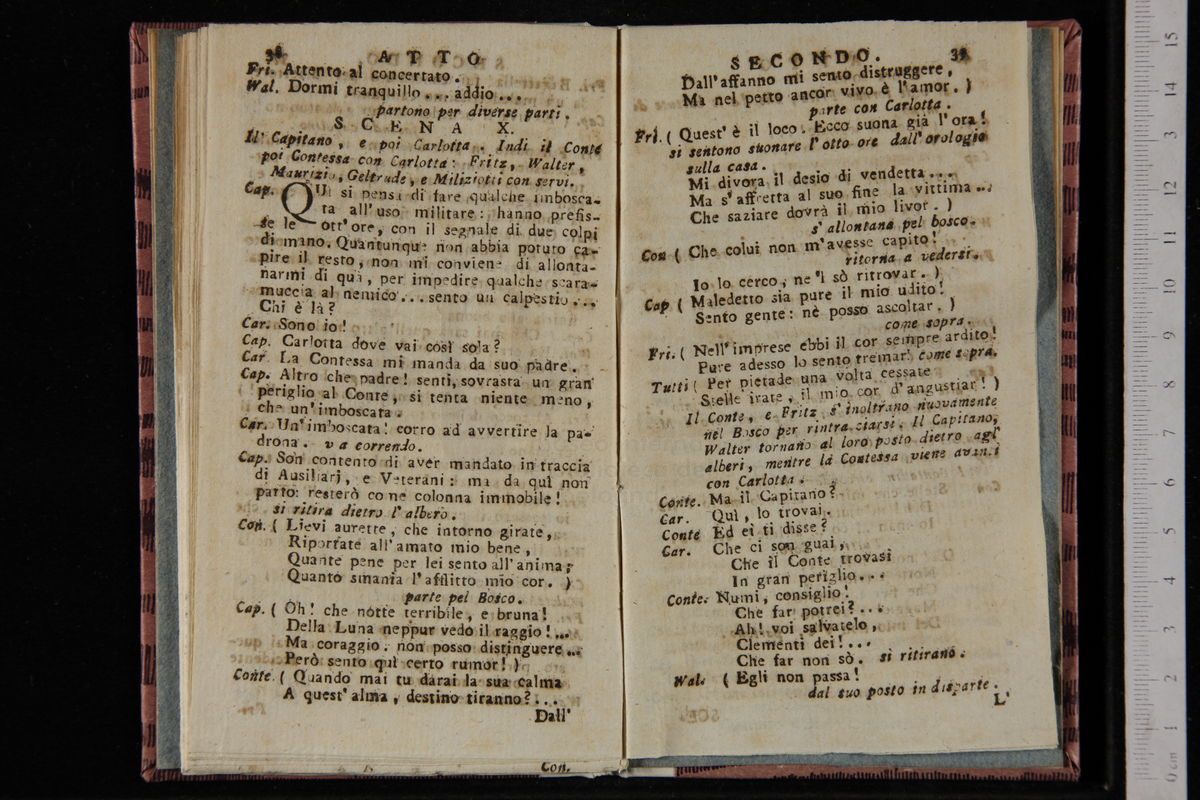 38 ATTO
Fri. Attento al concertato.
Wal. Dormi tranquillo... addio...
partono per diverse parti.
SCENA X.
Il Capitano, e poi Carlotta. Indi il Conte
poi Contessa con Carlotta: Fritz, Walter,
Maurizio, Geltrude, e Miliziotti con servi.
Cap. QUì si pensa di fare qualche imbosca-
ta all'uso militare: hanno prefis-
se le ott'ore, con il segnale di due colpi
di mano. Quantunque non abbia potuto ca-
pire il resto, non mi conviene di allonta-
narmi di quà, per impedire qualche scara-
muccia al nemico... sento un calpestio...
Chi è là?
Car. Sono io!
Cap. Carlotta dove vai così sola?
Car. La Contessa mi manda da suo padre.
Cap. Altro che padre! senti, sovrasta un gran
periglio al Conte, si tenta niente meno,
che un'imboscata.
Car. Un'imboscata! corro ad avvertire la pa-
drona. va correndo.
Cap. Son contento di aver mandato in traccia
di Ausiliarj, e Veterani: ma da quì non
parto: resterò come colonna immobile!
si ritira dietro l'albero.
Con. ( Lievi aurette, che intorno girate,
Riportate all'amato mio bene,
Quante pene per lei sento all'anima,
Quanto smania l'afflitto mio cor. )
parte pel Bosco.
Cap. ( Oh! che notte terribile, e bruna!
Della Luna neppur vedo il raggio!...
Ma coraggio: non posso distinguere...
Però sento quì certo rumor! )
Conte. ( Quando mai tu darai la sua calma
A quest'alma, destino tiranno?...
Dall'
Con.
SECONDO. 39
Dall'affanno mi sento distruggere,
Ma nel petto ancor vivo è l'amor. )
parte con Carlotta.
Fri. ( Quest'è il loco. Ecco suona già l'ora!
si sentono suonare l'otto ore dall'orologio
sulla casa.
Mi divora il desio di vendetta...
Ma s'affretta al suo fine la vittima...
Che saziare dovrà il mio livor. )
s'allontana pel bosco.
Con ( Che colui non m'avesse capito!
ritorna a vedersi.
Io lo cerco, ne'l sò ritrovar. )
Cap ( Maledetto sia pure il mio udito!
Sento gente: nè posso ascoltar. )
come sopra.
Fri. ( Nell'imprese ebbi il cor sempre ardito!
Pure adesso lo sento tremar! come sopra.
Tutti ( Per pietade una volta cessate
Stelle irate, il mio cor d'angustiar! )
Il Conte, e Fritz s'inoltrano nuovamente
nel Bosco per rintracciarsi. Il Capitano,
Walter tornano al loro posto dietro agl'
alberi, mentre la Contessa viene avanti
con Carlotta.
Conte. Ma il Capitano?
Car. Quì, lo trovai.
Conte Ed ei ti disse?
Car. Che ci son guai,
Che il Conte trovasi
In gran periglio...
Conte. Numi, consiglio!
Che far potrei?...
Ah! voi salvatelo,
Clementi dei!...
Che far non sò. si ritirano.
Wal. ( Egli non passa!
dal suo posto in disparte.
L'